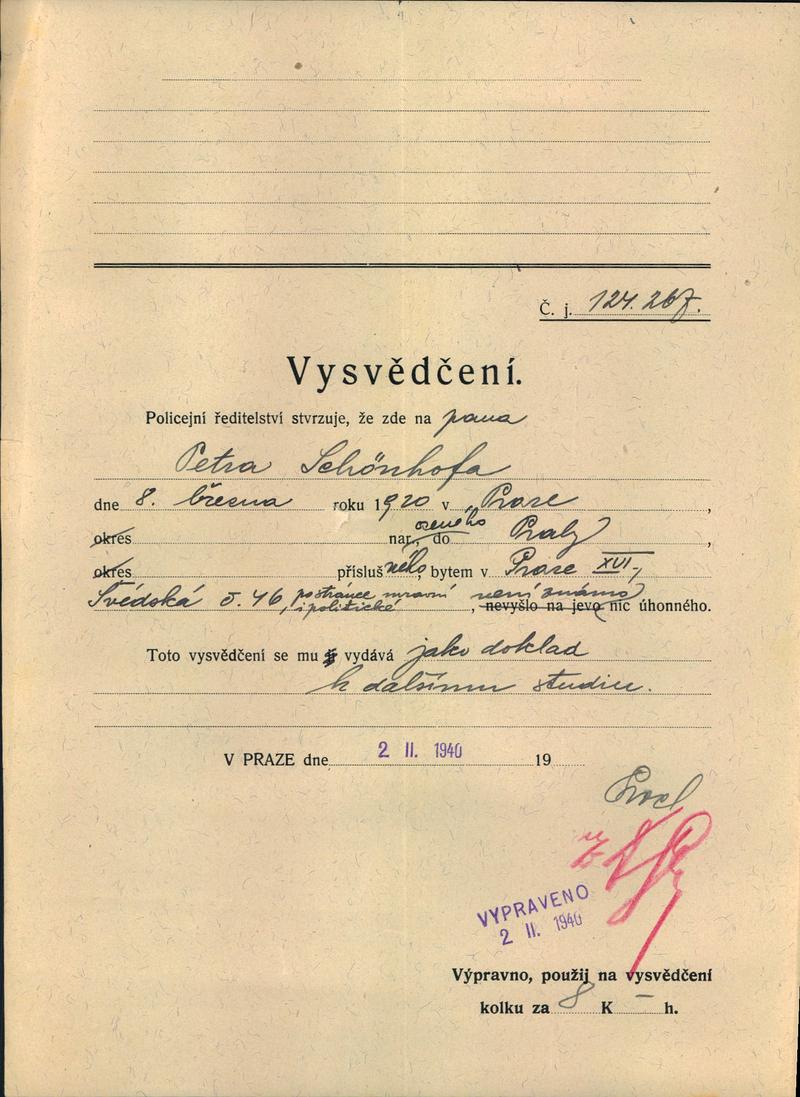 Č. j. 124.267.
Vysvědčení.
Policejní ředitelství stvrzuje, že zde na pana
Petra Schönhofa
dne 8. března roku 1920 v Praze,
okres nar. ozeného, do Prahy,
okres příslušného, bytem v Praze XVI.,
Švédská č. 46, po stránce mravní i politické, není známo nevyšlo na jevo nic úhonného.
Toto vysvědčení se mu vydává jako doklad
k dalšímu studiu.
V PRAZE dne 2 II. 1940 19
VYPRAVENO
2 II. 1940
Výpravno, použij na vysvědčení
kolku za 8 K – h.